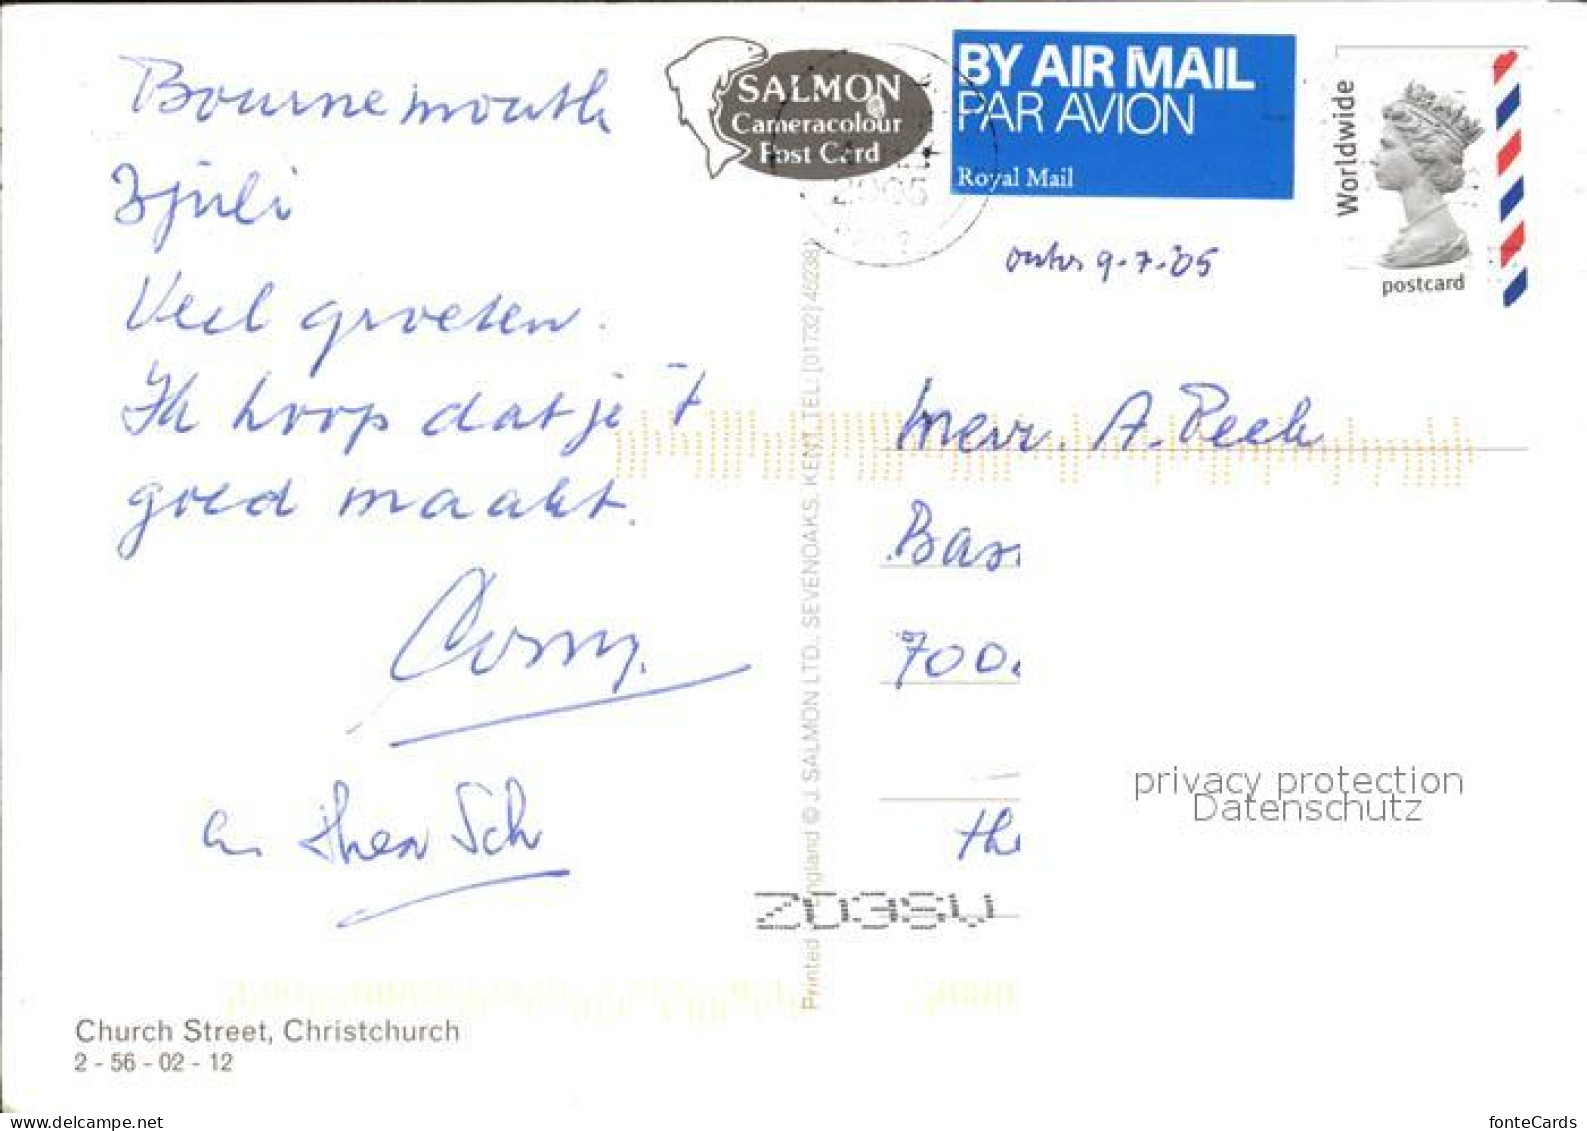 Bournemouth
3 juli
Veel groeten.
Ik hoop dat je 't
goed maakt.
Sch
Church Street, Christchurch
2 - 56 - 02 - 12
SALMON
Cameracolour
Post Card
2005
BY AIR MAIL
PAR AVION
Royal Mail
Worldwide
postcard
9-7-'05
Mevr. A. Peek
Bas
700
the
Printed England © J. SALMON LTD., SEVENOAKS, KENT. TEL: [01732] 452381
2038W
privacy protection
Datenschutz
www.delcampe.net
fonteCards